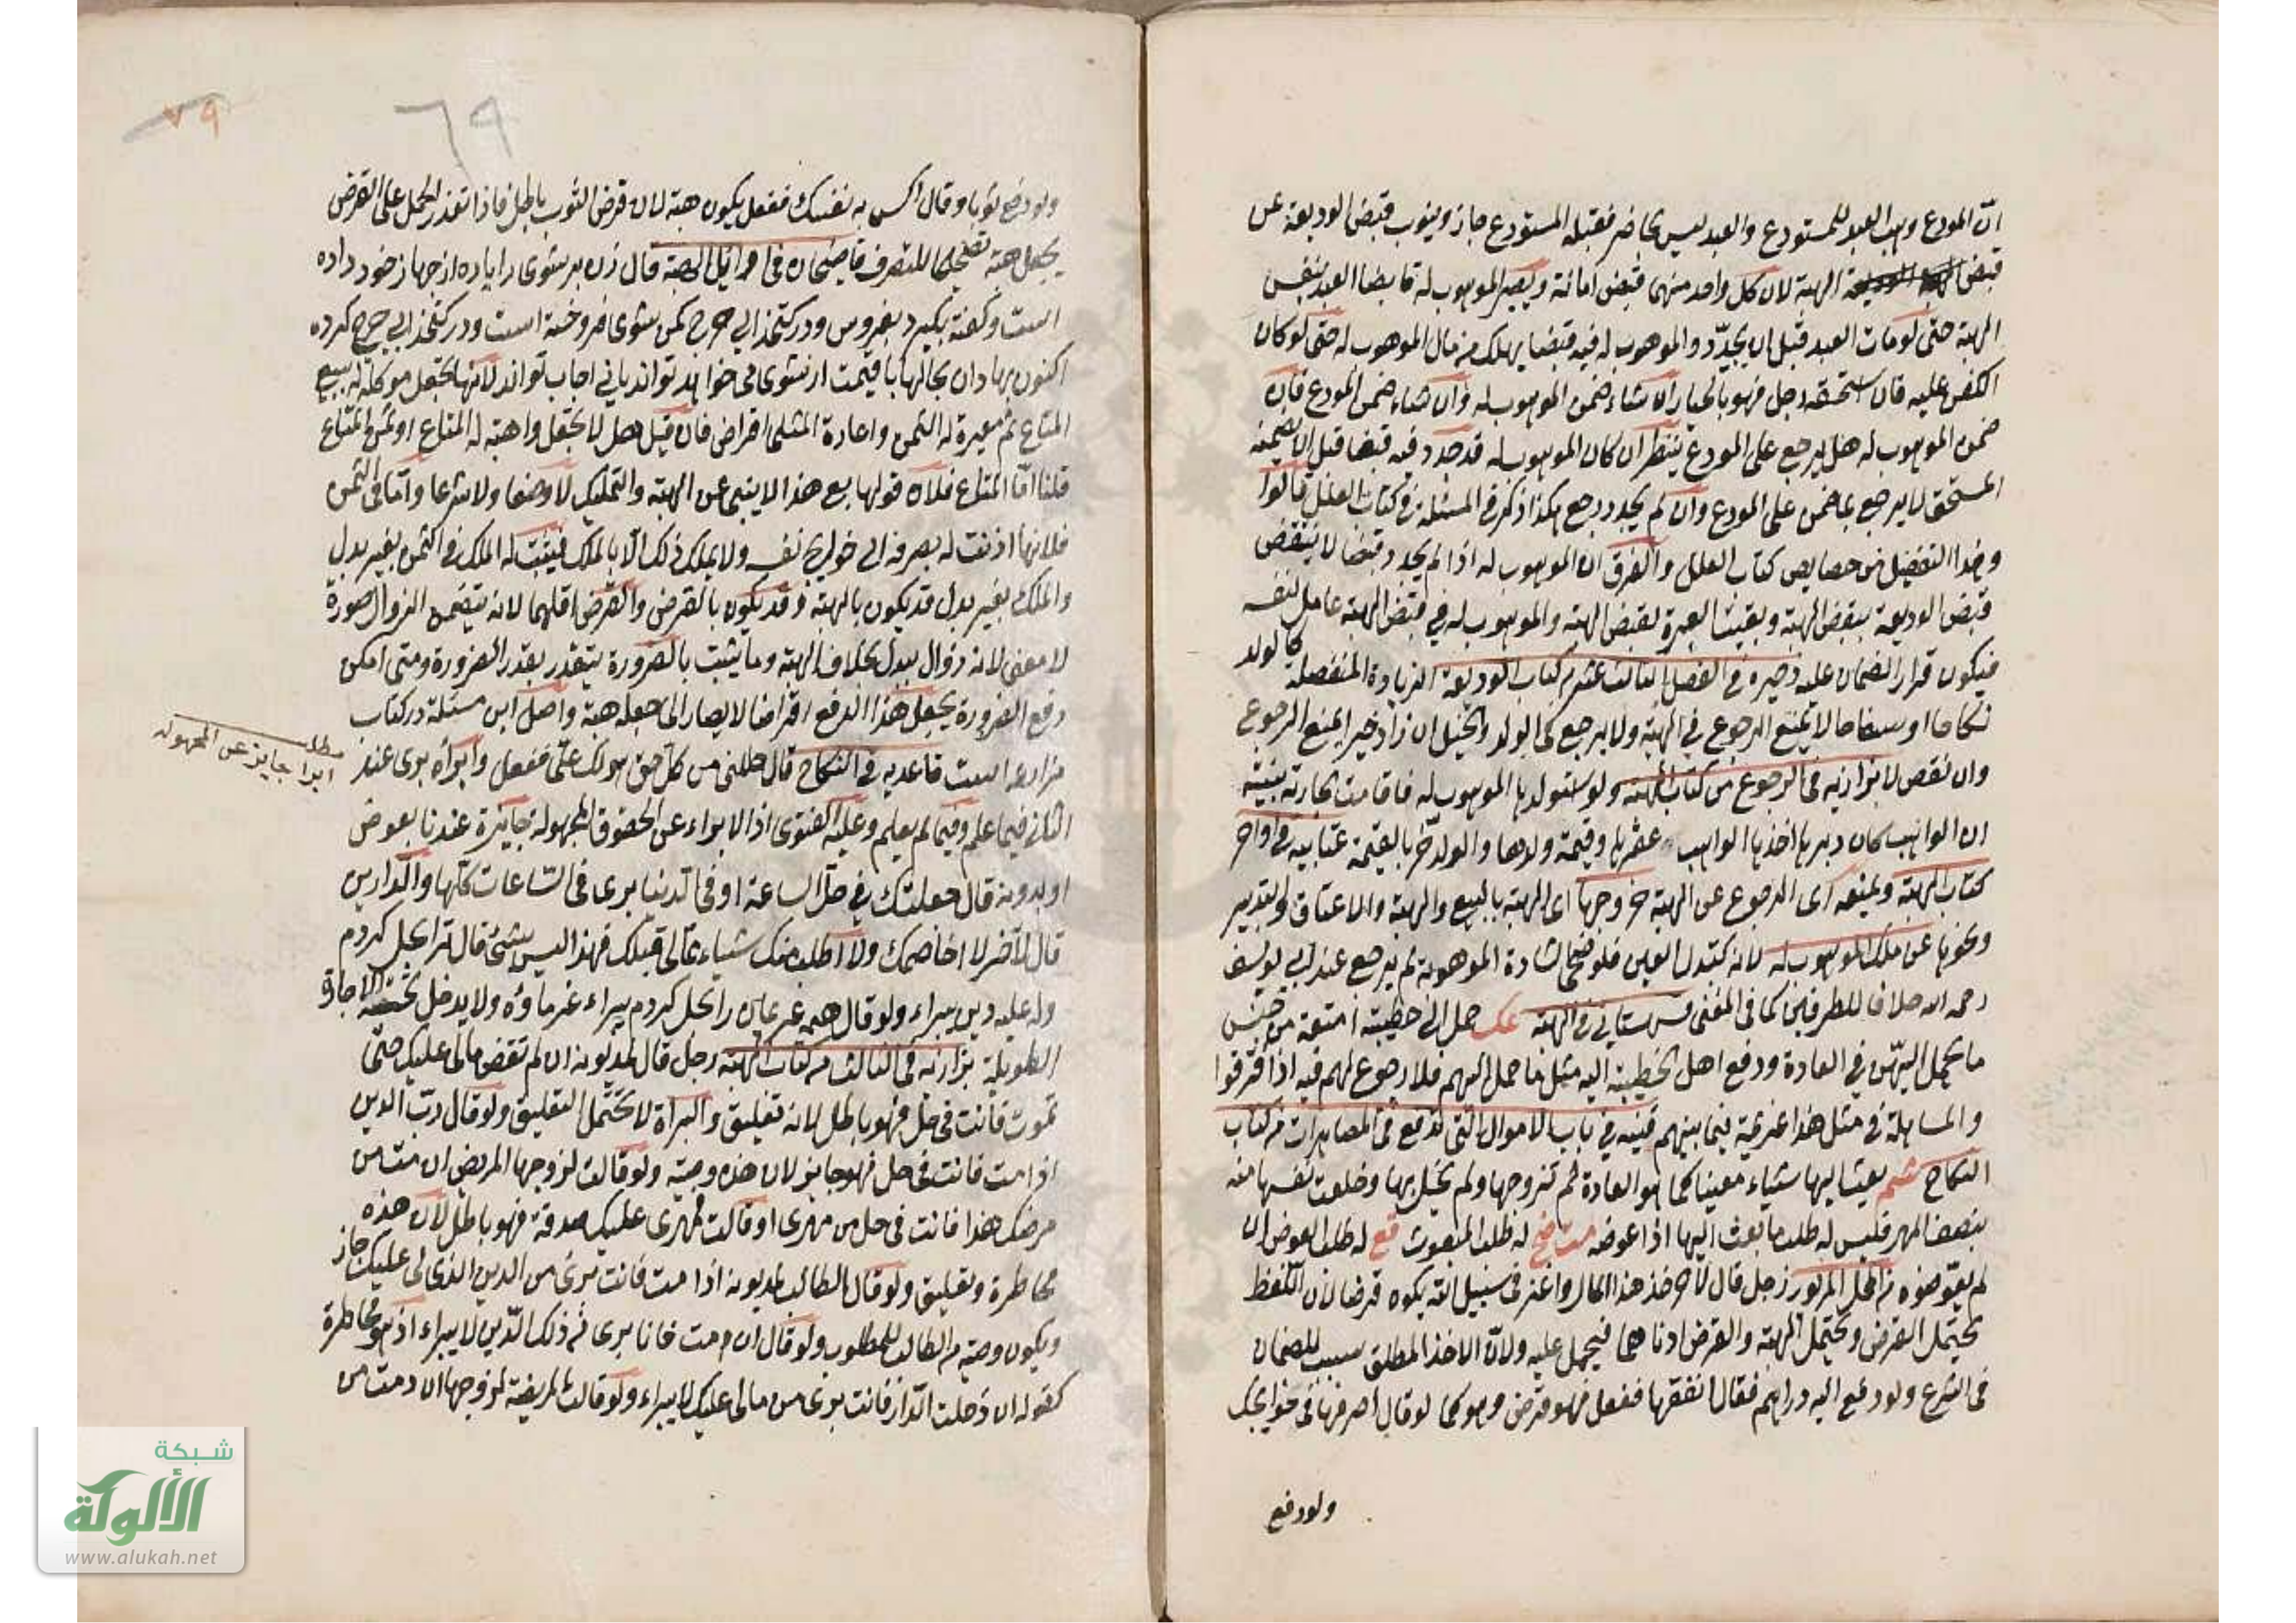 انّ المودع وهب العبد للمستودع والعبد ليس بحاضر فقبله المستودع جاز وينوب قبض الوديعة عن
قبض الهبة لان كل واحد منهما قبض امانة ويصير الموهوب له قابضا العبد بنفس
الهبة حتى لو مات العبد قبل ان يجدّد الموهوب له فيه قبضا يهلك من مال الموهوب له حتى لو كان
الكفن عليه فان استحقه رجل فهو بالخيار ان شاء ضمن الموهوب له وان شاء ضمن المودع فان
ضمن الموهوب له هل يرجع على المودع ينظر ان كان الموهوب له قد جدد فيه قبضا قبل ان يضمنه
المستحق لا يرجع بما ضمن على المودع وان لم يجدد رجع هكذا ذكر في المسئلة في كتاب العلل قالوا
وهذا التفصيل من خصايص كتاب العلل والفرق ان الموهوب له اذا لم يجدد قبضا لا ينتقض
قبض الوديعة بقبض الهبة وبقيت العبرة لقبض الهبة والموهوب له في قبض الهبة عامل لنفسه
فيكون قرار الضمان عليه ذخيره في الفصل الثالث عشر من كتاب الوديعة الزيادة المنفصلة كالولد
نكاحا او سفاحا لا تمنع الرجوع في الهبة ولا يرجع في الولد والخيل ان زاد خيرا يمنع الرجوع
وان نقص لا بزازيه في الرجوع من كتاب الهبة ولو استولدها الموهوب له فاقامت الجارية بينة
ان الواهب كان دبرها اخذها الواهب وعقرها وقيمة ولدها والولد حرّ بالقيمة عتابيه في اواخر
كتاب الهبة ويمنعه اى الرجوع عن الهبة خروجها اى الهبة بالبيع والهبة والاعتاق والتدبير
ونحوها عن ملك الموهوب له لانه كتبدل العين فلو ضحى الشاة الموهوبة لم يرجع عند ابي يوسف
رحمه الله خلافا للطرفين كما في المغني قهستاني في الهبة عك حمل الى خطيبته امتعة من جنس
ما يحمل اليهنّ في العادة ودفع اهل الخطيبة اليه مثل ما حمل اليهم فلا رجوع لهم فيه اذا افترقوا
والمساهلة في مثل هذا عزيمة فيما بينهم قنيه في باب الاموال التى تدفع فى المصاهرات من كتاب
النكاح شم بعث اليها شياء معينا كما هو العادة ثم تزوجها ولم يخل بها وخلعت نفسها منه
ببعض المهر فليس له طلب ما بعث اليها اذا عوضه مت فخ له طلب المبعوث قع له طلب العوض ان
لم يعوضوه من المحل المزبور رجل قال لآخر خذ هذا المال واغز في سبيل الله يكون قرضا لان اللفظ
يحتمل القرض ويحتمل الهبة والقرض ادناهما فيحمل عليه ولانّ الاخذ المطلق سبب للضمان
فى الشرع ولو دفع اليه دراهم فقال انفقها ففعل فهو قرض وهو كما لو قال اصرفها فى حوايجك
ولو دفع
٧٩
٦٩
ولو دفع ثوبا وقال اكس به نفسك ففعل يكون هبة لان قرض الثوب باطل فاذا تعذر الحمل على القرض
يجعل هبة تصحيحا للتصرف قاضيخان في اوائل الهبة قال زن بر شوى را ياره از جهاز خود داده
است وكفته بكير وبفروش ودر كتخدايي خرج كن شوى فروخته است ودر كتخدايي خرج كرده
اكنون بهادان بحالها با قيمت از شوى مى خواهد تواند يا نى اجاب تواند لانها تجعل موكلة له ببيع
المتاع ثم معيرة له الثمن واعادة المثلى اقراض فان قيل هل لا تجعل واهبة له المتاع او ثمن المتاع
قلنا امّا المتاع فلان قولها بع هذا لا ينبى عن الهبة والتمليك لا وضعا ولا شرعا وامّا في الثمن
فلانها اذنت له بصرفه الى حوايج نفسه ولا يملك ذلك الّا بالملك فيثبت له الملك في الثمن بغير بدل
والملك بغير بدل قد يكون بالهبة وقد يكون بالقرض والقرض اقلهما لانه يتضمن الزوال صورة
لا معنى لانه زوال ببدل بخلاف الهبة وما يثبت بالضرورة يتقدر بقدر الضرورة ومتى امكن
دفع الضرورة بجعل هذا الدفع اقراضا لا يصار الى جعله هبة واصل اين مسئلة در كتاب
مزارعه است قاعديه في النكاح قال حللنى من كل حق هو لك علىّ ففعل وابرأه برى عند
مطلب ابراء جايز عن المجهوله
الثانى فيما علم وفيما لم يعلم وعليه الفتوى اذ الابراء عن الحقوق المجهولة جائزة عندنا بعوض
او بدونه قال جعلتك في حلّ الساعة او فى الدنيا برى فى السّاعات كلّها والدارين
قال لآخر لا اخاصمك ولا اطلب منك شياء مما لى قبلك فهذا ليس بشئ قال ترا بحل كردم
وله عليه دين يبراء ولو قال همه غريمان را بحل كردم يبراء غرماؤه ولا يدخل تحته الاجارة
الطويلة بزازيه في الثالث من كتاب الهبة رجل قال لمديونه ان لم تقض مالى عليك حتىّ
تموت فأنت في حلّ فهو باطل لانه تعليق والبراة لا تحتمل التعليق ولو قال ربّ الدين
اذا مت فانت فى حل فهو جايز لان هذه وصية ولو قالت لزوجها المريض ان مت من
مرضك هذا فانت في حل من مهرى او قالت فمهرى عليك صدقة فهو باطل لان هذه
مخاطرة وتعليق ولو قال الطالب لمديونه اذا مت فانت برئ من الدين الذى لى عليك جاز
ويكون وصية من الطالب للمطلوب ولو قال ان مت فانا برى من ذلك الدّين لا يبراء اذ هو مخاطرة
كقوله ان دخلت الدّار فانت برئ من مالى عليك لا يبراء ولو قالت المريضة لزوجها ان مت من
شبكة
الألوكة
www.alukah.net